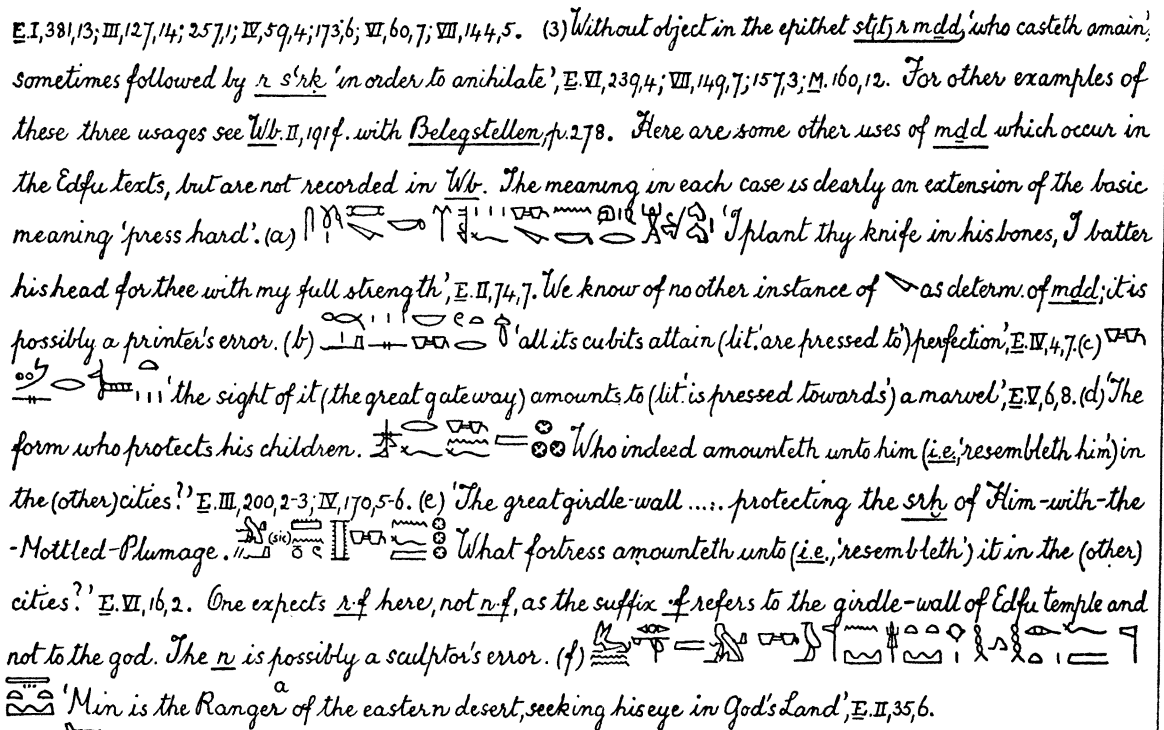 E.I,381,13; III,127,14; 257,1; IV,59,4; 173,6; VI,60,7; VII,144,5. (3) Without object in the epithet st(t) r mdd, 'who casteth amain',
sometimes followed by r sꜥrḳ 'in order to anihilate', E.VI,239,4; VII,149,7; 157,3; M.160,12. For other examples of
these three usages see Wb.II,191f. with Belegstellen, p.278. Here are some other uses of mḏd which occur in
the Edfu texts, but are not recorded in Wb. The meaning in each case is clearly an extension of the basic
meaning 'press hard'. (a) 'I plant thy knife in his bones, I batter
his head for thee with my full strength', E.II,74,7. We know of no other instance of as determ. of mḏd; it is
possibly a printer's error. (b) 'all its cubits attain (lit. 'are pressed to') perfection', E.IV,4,7. (c)
'the sight of it (the great gateway) amounts to (lit. 'is pressed towards') a marvel', E.V,6,8. (d) 'The
form who protects his children. Who indeed amounteth unto him (i.e., 'resembleth him') in
the (other) cities?' E.III,200,2-3; IV,170,5-6. (e) 'The great girdle-wall ..... protecting the srḫ of Him-with-the
-Mottled-Plumage. (sic) What fortress amounteth unto (i.e., 'resembleth') it in the (other)
cities?' E.VI,16,2. One expects r.f here, not n.f, as the suffix .f refers to the girdle-wall of Edfu temple and
not to the god. The n is possibly a sculptor's error. (f)
'Min is the Ranger a of the eastern desert, seeking his eye in God's Land', E.II,35,6.